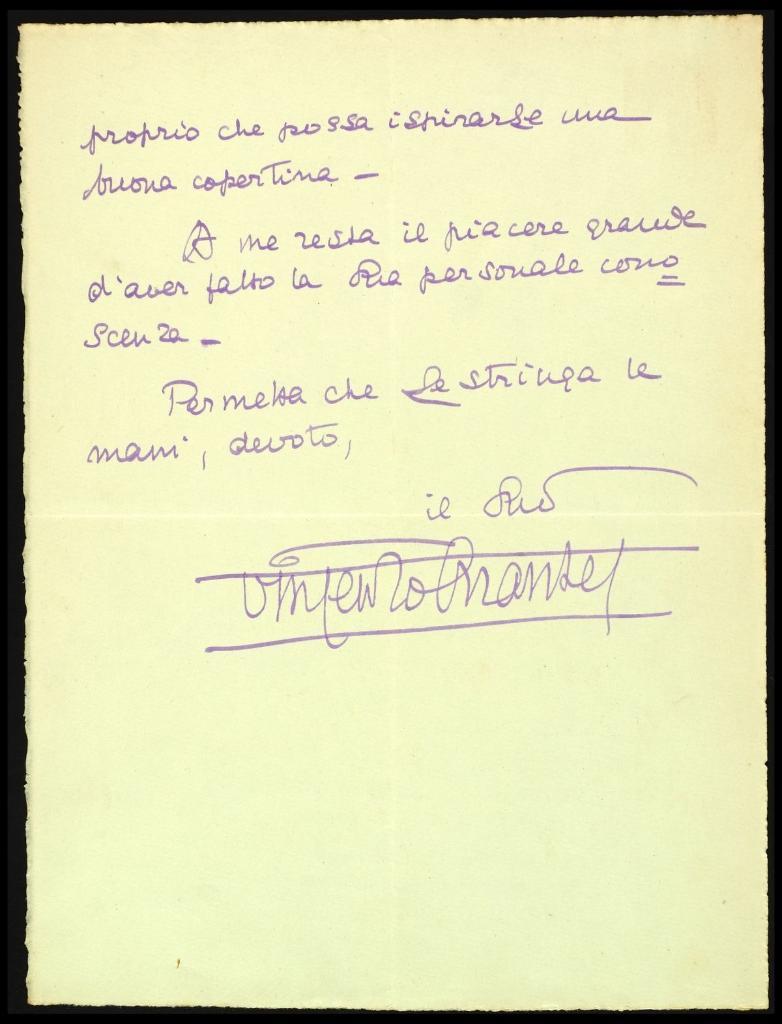 proprio che possa ispirarLe una
buona copertina –
A me resta il piacere grande
d'aver fatto la Sua personale cono=
scenza –
Permetta che Le stringa le
mani, devoto,
il Suo
Vincenzo